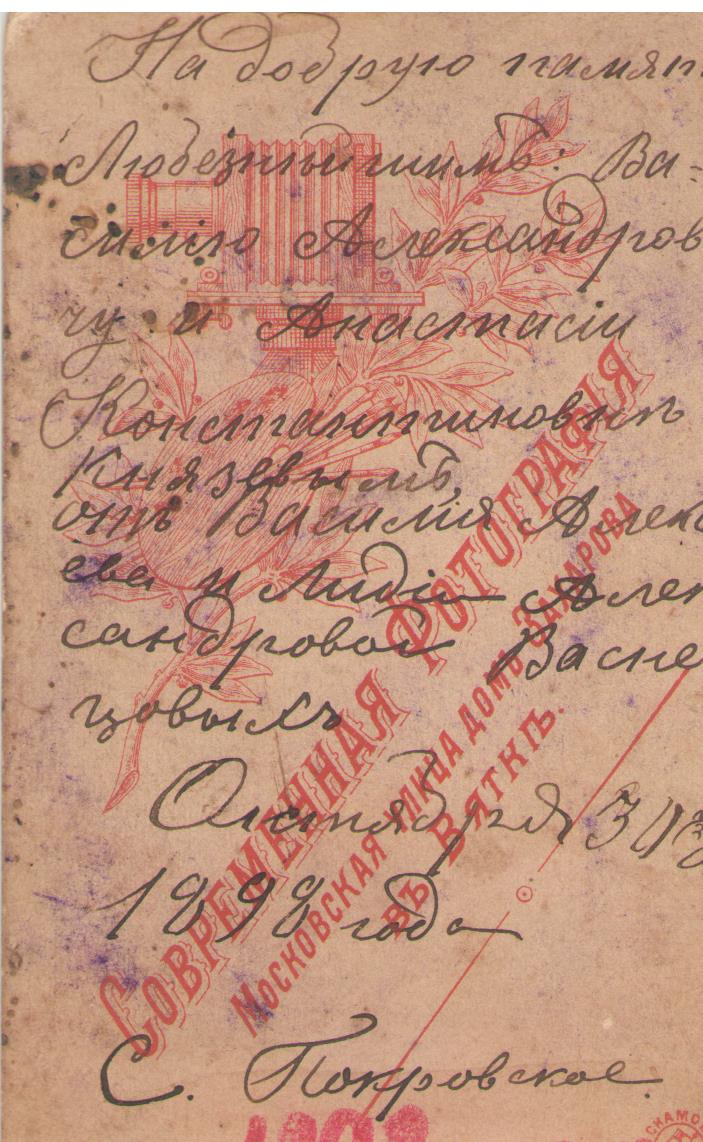 На добрую памят
Любезнѣйшимъ: Ва-
силію Александров
чу и Анастасіи
Константиновнѣ
Князевымъ,
отъ Василія Алек
ева и Лидіи Алек
сандровой Васне
цовыхъ
Октября 3
1898 года
С. Покровское.
Современная Фотографія
Московская улица домъ Захарова
въ Вяткѣ.